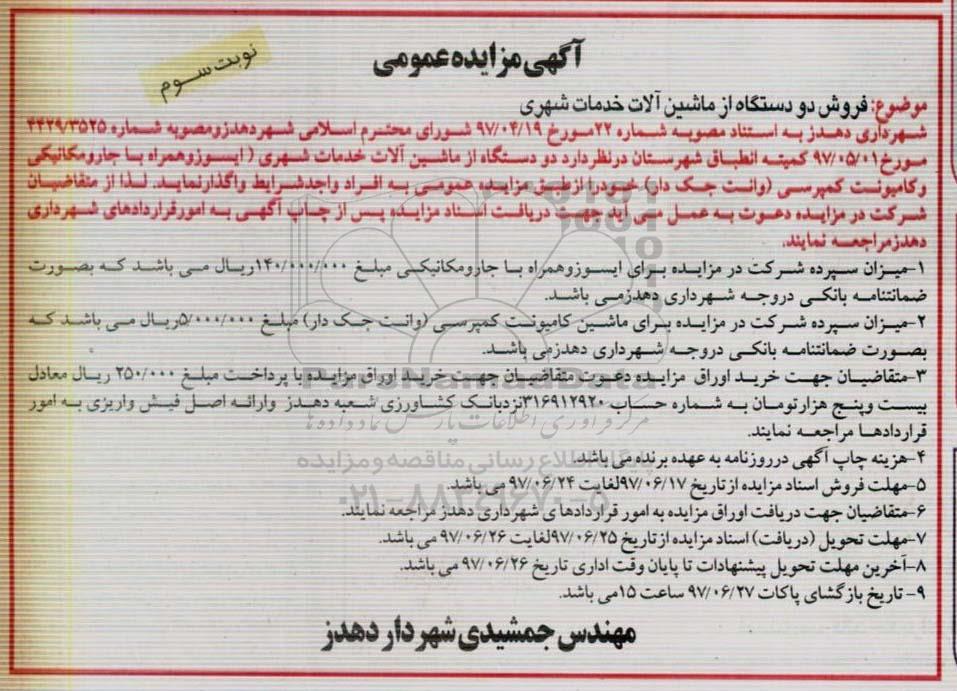 آگهی مزایده عمومی
نوبت سوم
موضوع: فروش دو دستگاه از ماشین آلات خدمات شهری
شهرداری دهدز به استناد مصوبه شماره ۲۲مورخ ۹۷/۰۴/۱۹ شورای محترم اسلامی شهردهدزومصوبه شماره ۴۴۲۹/۳۵۲۵
مورخ۹۷/۰۵/۰۱ کمیته انطباق شهرستان درنظردارد دو دستگاه از ماشین آلات خدمات شهری ( ایسوزوهمراه با جارومکانیکی
وکامیونت کمپرسی (وانت جک دار) خودرا ازطریق مزایده عمومی به افراد واجدشرایط واگذارنماید. لذا از متقاضیان
شرکت در مزایده دعوت به عمل می آید جهت دریافت اسناد مزایده پس از چاپ آگهی به امورقراردادهای شهرداری
دهدزمراجعه نمایند.
۱-میزان سپرده شرکت در مزایده برای ایسوزوهمراه با جارومکانیکی مبلغ ۱۴۰/۰۰۰/۰۰۰ریال می باشد که بصورت
ضمانتنامه بانکی دروجه شهرداری دهدزمی باشد.
۲-میزان سپرده شرکت در مزایده برای ماشین کامیونت کمپرسی (وانت جک دار) مبلغ ۵/۰۰۰/۰۰۰ریال می باشد که
بصورت ضمانتنامه بانکی دروجه شهرداری دهدزمی باشد.
۳-متقاضیان جهت خرید اوراق مزایده دعوت متقاضیان جهت خرید اوراق مزایده با پرداخت مبلغ ۲۵۰/۰۰۰ ریال معادل
بیست وپنج هزارتومان به شماره حساب ۳۱۶۹۱۲۹۲۰نزدبانک کشاورزی شعبه دهدز وارائه اصل فیش واریزی به امور
قراردادها مراجعه نمایند.
۴-هزینه چاپ آگهی درروزنامه به عهده برنده می باشد.
۵-مهلت فروش اسناد مزایده از تاریخ ۹۷/۰۶/۱۷لغایت ۹۷/۰۶/۲۴ می باشد.
۶-متقاضیان جهت دریافت اوراق مزایده به امور قراردادهای شهرداری دهدز مراجعه نمایند.
۷-مهلت تحویل (دریافت) اسناد مزایده از تاریخ ۹۷/۰۶/۲۵لغایت ۹۷/۰۶/۲۶ می باشد.
۸-آخرین مهلت تحویل پیشنهادات تا پایان وقت اداری تاریخ ۹۷/۰۶/۲۶ می باشد.
۹- تاریخ بازگشای پاکات ۹۷/۰۶/۲۷ ساعت ۱۵می باشد.
مهندس جمشیدی شهردار دهدز
ParsNamadData
مرکز فرآوری اطلاعات پارس نماد داده ها
پایگاه اطلاع رسانی مناقصه و مزایده
۰۲۱-۸۸۳۴۹۶۷۰-۵